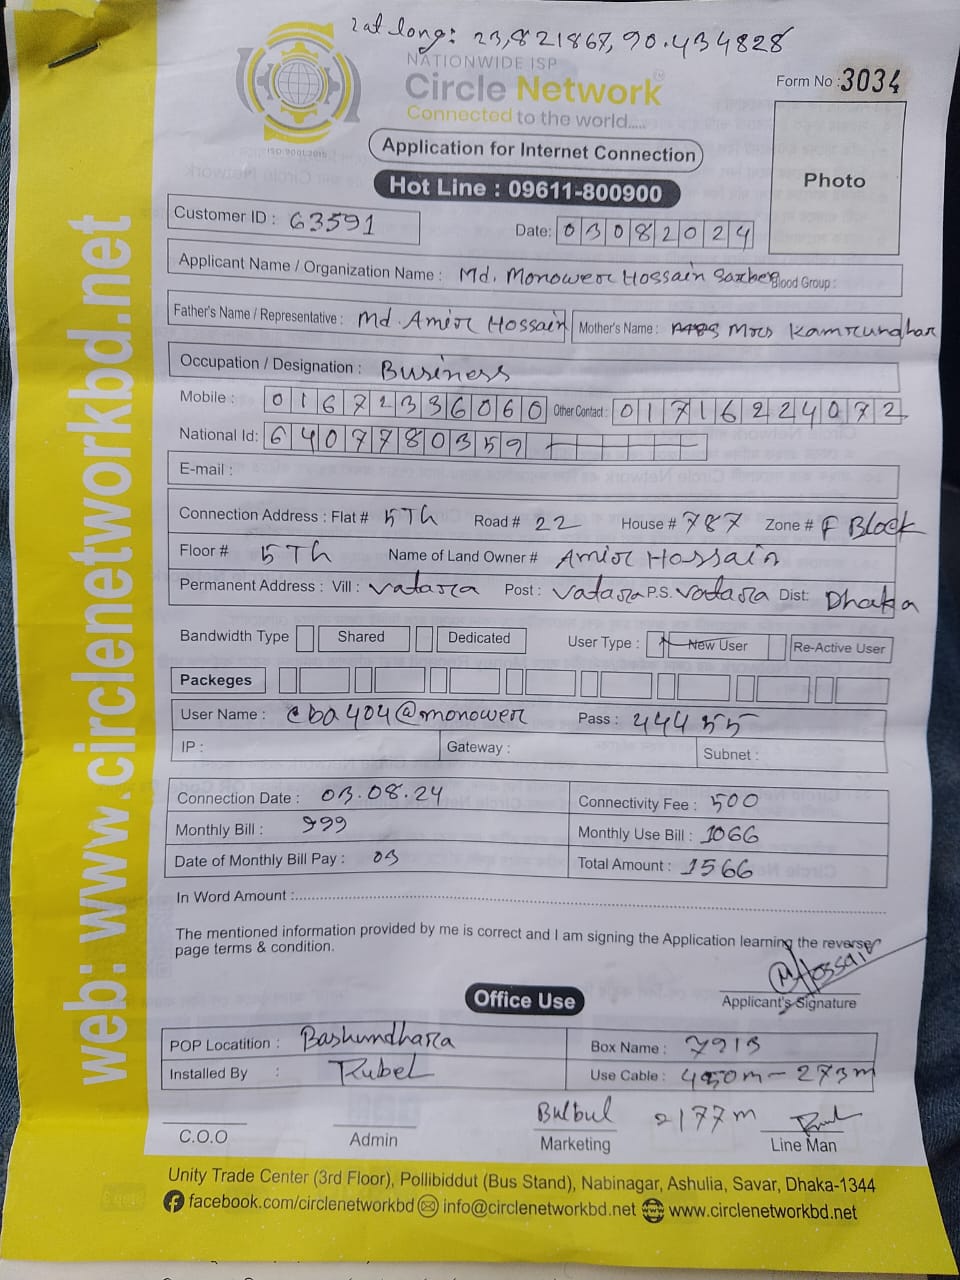 Lat long: 23,821867, 90.434828
NATIONWIDE ISP
Circle Network
Connected to the world.....
ISO 9001:2015
Form No : 3034
Application for Internet Connection
Photo
Hot Line : 09611-800900
Customer ID : 63591
Date: 03082024
Applicant Name / Organization Name : Md. Monower Hossain Sarker Blood Group :
Father's Name / Representative : Md. Amir Hossain Mother's Name : Mrs Kamrunghar
Occupation / Designation : Business
Mobile : 01672336060 Other Contact : 01716224072
National Id: 6407780359
E-mail :
Connection Address : Flat # 5Th Road # 22 House # 787 Zone # F Block
Floor # 5Th Name of Land Owner # Amir Hossain
Permanent Address : Vill : Vatara Post : Vatara P.S. Vatara Dist: Dhaka
Bandwidth Type Shared Dedicated User Type : New User Re-Active User
Packeges
User Name : cba404@monower Pass : 444455
IP : Gateway : Subnet :
Connection Date : 03.08.24 Connectivity Fee : 500
Monthly Bill : 999 Monthly Use Bill : 1066
Date of Monthly Bill Pay : 03 Total Amount : 1566
In Word Amount :
The mentioned information provided by me is correct and I am signing the Application learning the reverse
page terms & condition.
MHossain
Applicant's Signature
Office Use
POP Locatition : Bashundhara Box Name :
Installed By : Rubel Use Cable :
Bulbul 2177m
C.O.O Admin Marketing Line Man
Unity Trade Center (3rd Floor), Pollibiddut (Bus Stand), Nabinagar, Ashulia, Savar, Dhaka-1344
facebook.com/circlenetworkbd info@circlenetworkbd.net www.circlenetworkbd.net
web: www.circlenetworkbd.net